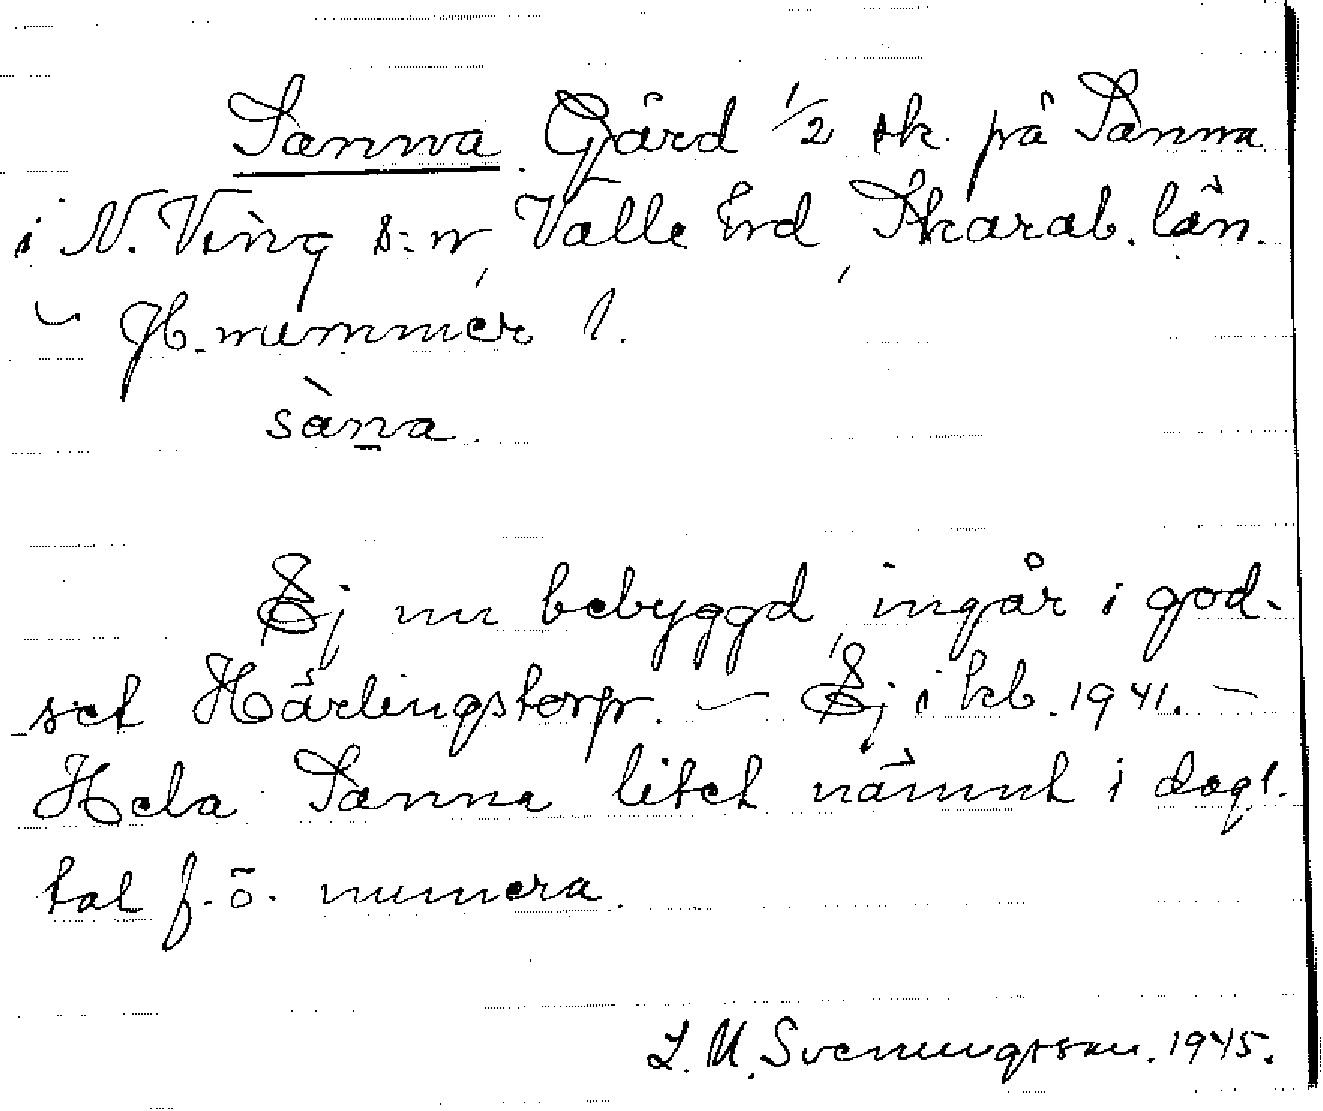 Sanna. Gård 1/2 sk. på Sanna
i N. Ving s:n, Valle hrd, Skarab. län.
– Jb. nummer 1.
sàna.
Ej nu bebyggd, ingår i god-
set Härlingstorp. – Ej i tb. 1941. –
Hela Sanna litet nämnt i dagl.
tal f. ö. numera.
L. M. Svenungsson. 1945.